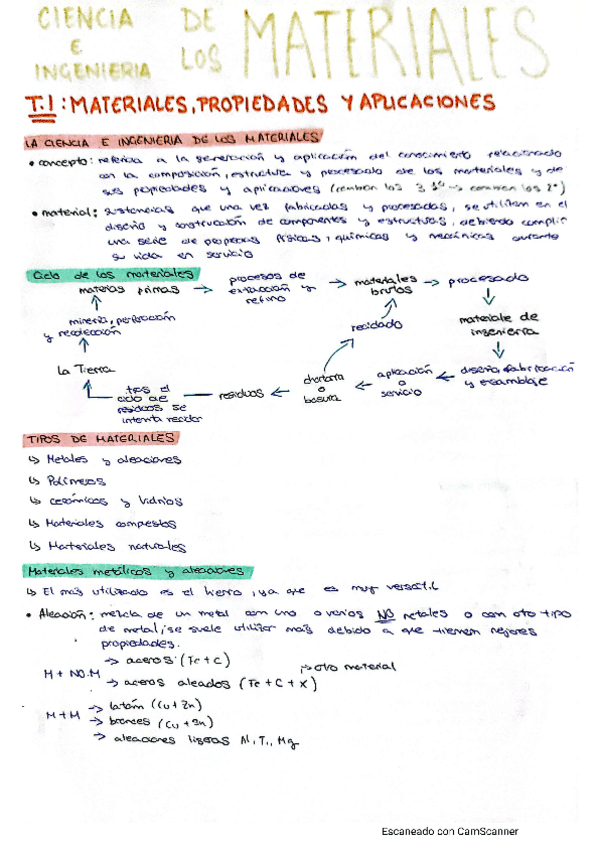 CIENCIA E INGENIERIA DE LOS MATERIALES
T.1: MATERIALES, PROPIEDADES Y APLICACIONES
LA CIENCIA E INGENIERIA DE LOS MATERIALES
• concepto: referida a la generación y aplicación del conocimiento relacionado
con la composición, estructura y procesado de los materiales y de
sus propiedades y aplicaciones
• material: sustancias que una vez fabricadas y procesadas, se utilizan en el
diseño y construcción de componentes y estructuras, debiendo cumplir
una serie de físicas, químicas y mecánicas durante
su vida en servicio
Ciclo de los materiales
materias primas → procesos de extracción y refino → materiales brutos → procesado
minería, perforación y recolección
reciclado
materiale de ingenierra
La Tierra
tras el ciclo de residuos se intenta recidar ← residuos ← chatarra o basura ← aplicación o servicio ← diseño, fabricación y ensamblaje
TIPOS DE MATERIALES
↳ Metales y aleaciones
↳ Polímeros
↳ cerámicos y vidrios
↳ Materiales compestos
↳ Materiales naturales
Materiales metálicos y aleaciones
↳ El más utilizado es el hierro, ya que es muy versatil
• Aleación: mezcla de un metal con uno o varios NO metales o con oto tipo
de metal, se suele utilizar más debido a que tienen mejores
propiedades.
M + NO.M → aceros: (Fe + C)
→ aceros aleados (Fe + C + X) → otro material
M + M → latón (Cu + Zn)
→ bronces (Cu + Sn)
→ aleaciones ligeras Al, Ti, Mg
Escaneado con CamScanner